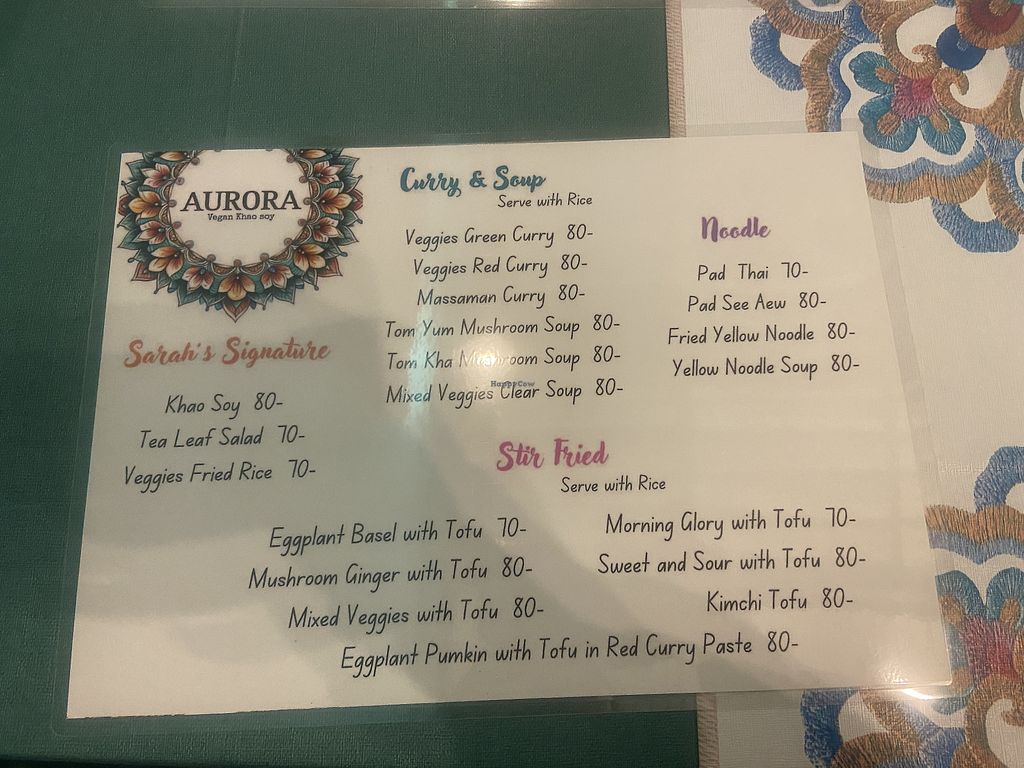 AURORA
Vegan Khao soy
Sarah's Signature
Khao Soy 80-
Tea Leaf Salad 70-
Veggies Fried Rice 70-
Curry & Soup
Serve with Rice
Veggies Green Curry 80-
Veggies Red Curry 80-
Massaman Curry 80-
Tom Yum Mushroom Soup 80-
Tom Kha Mushroom Soup 80-
Mixed Veggies Clear Soup 80-
HappyCow
Noodle
Pad Thai 70-
Pad See Aew 80-
Fried Yellow Noodle 80-
Yellow Noodle Soup 80-
Stir Fried
Serve with Rice
Eggplant Basel with Tofu 70-
Mushroom Ginger with Tofu 80-
Mixed Veggies with Tofu 80-
Morning Glory with Tofu 70-
Sweet and Sour with Tofu 80-
Kimchi Tofu 80-
Eggplant Pumkin with Tofu in Red Curry Paste 80-